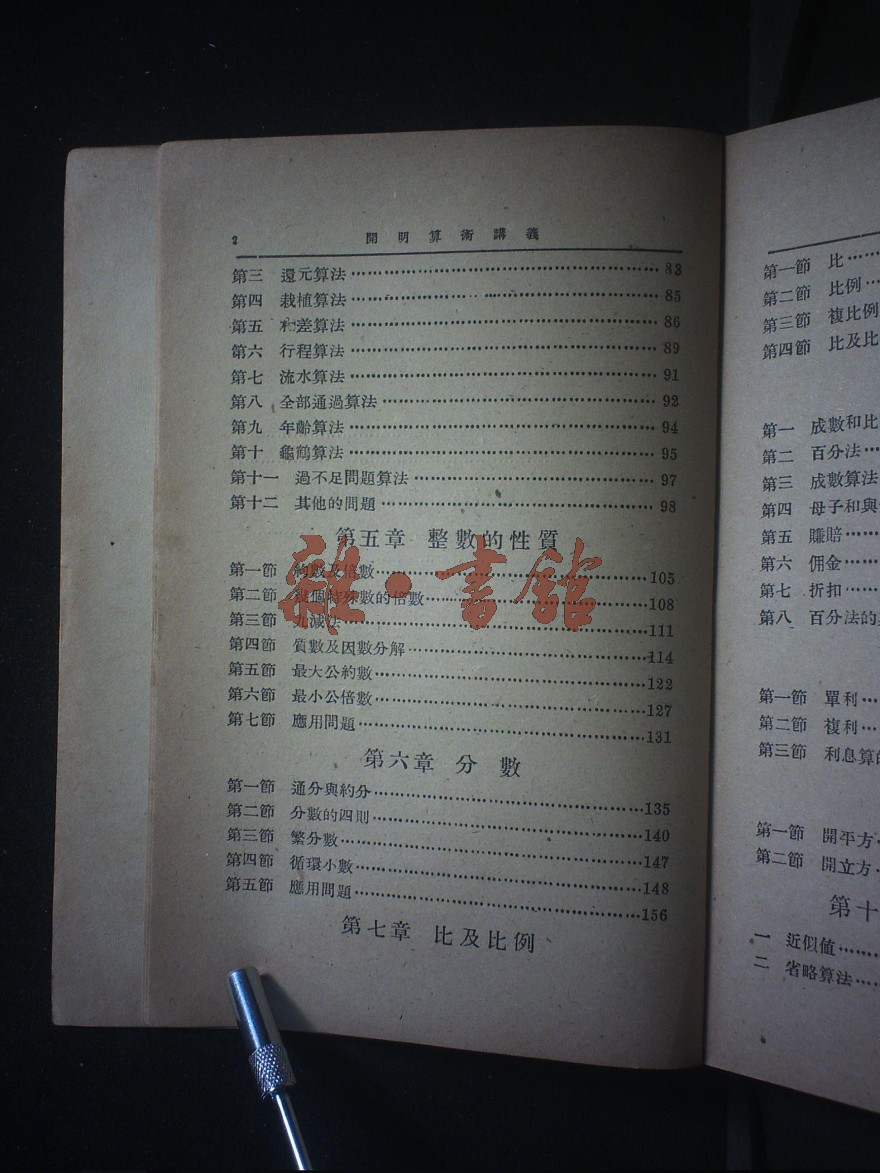 2 開明算術講義
第三 還元算法 83
第四 栽植算法 85
第五 和差算法 86
第六 行程算法 89
第七 流水算法 91
第八 全部通過算法 92
第九 年齡算法 94
第十 龜鶴算法 95
第十一 過不足問題算法 97
第十二 其他的問題 98
第五章 整數的性質
第一節 約數及倍數 105
第二節 幾個特殊數的倍數 108
第三節 九減法 111
第四節 質數及因數分解 114
第五節 最大公約數 122
第六節 最小公倍數 127
第七節 應用問題 131
第六章 分數
第一節 通分與約分 135
第二節 分數的四則 140
第三節 繁分數 147
第四節 循環小數 148
第五節 應用問題 156
第七章 比及比例
雜·書館
第一節 比
第二節 比例
第三節 複比例
第四節 比及比
第一 成數和比
第二 百分法
第三 成數算法
第四 母子和與
第五 賺賠
第六 佣金
第七 折扣
第八 百分法的
第一節 單利
第二節 複利
第三節 利息算的
第一節 開平方
第二節 開立方
第十
一 近似值
二 省略算法